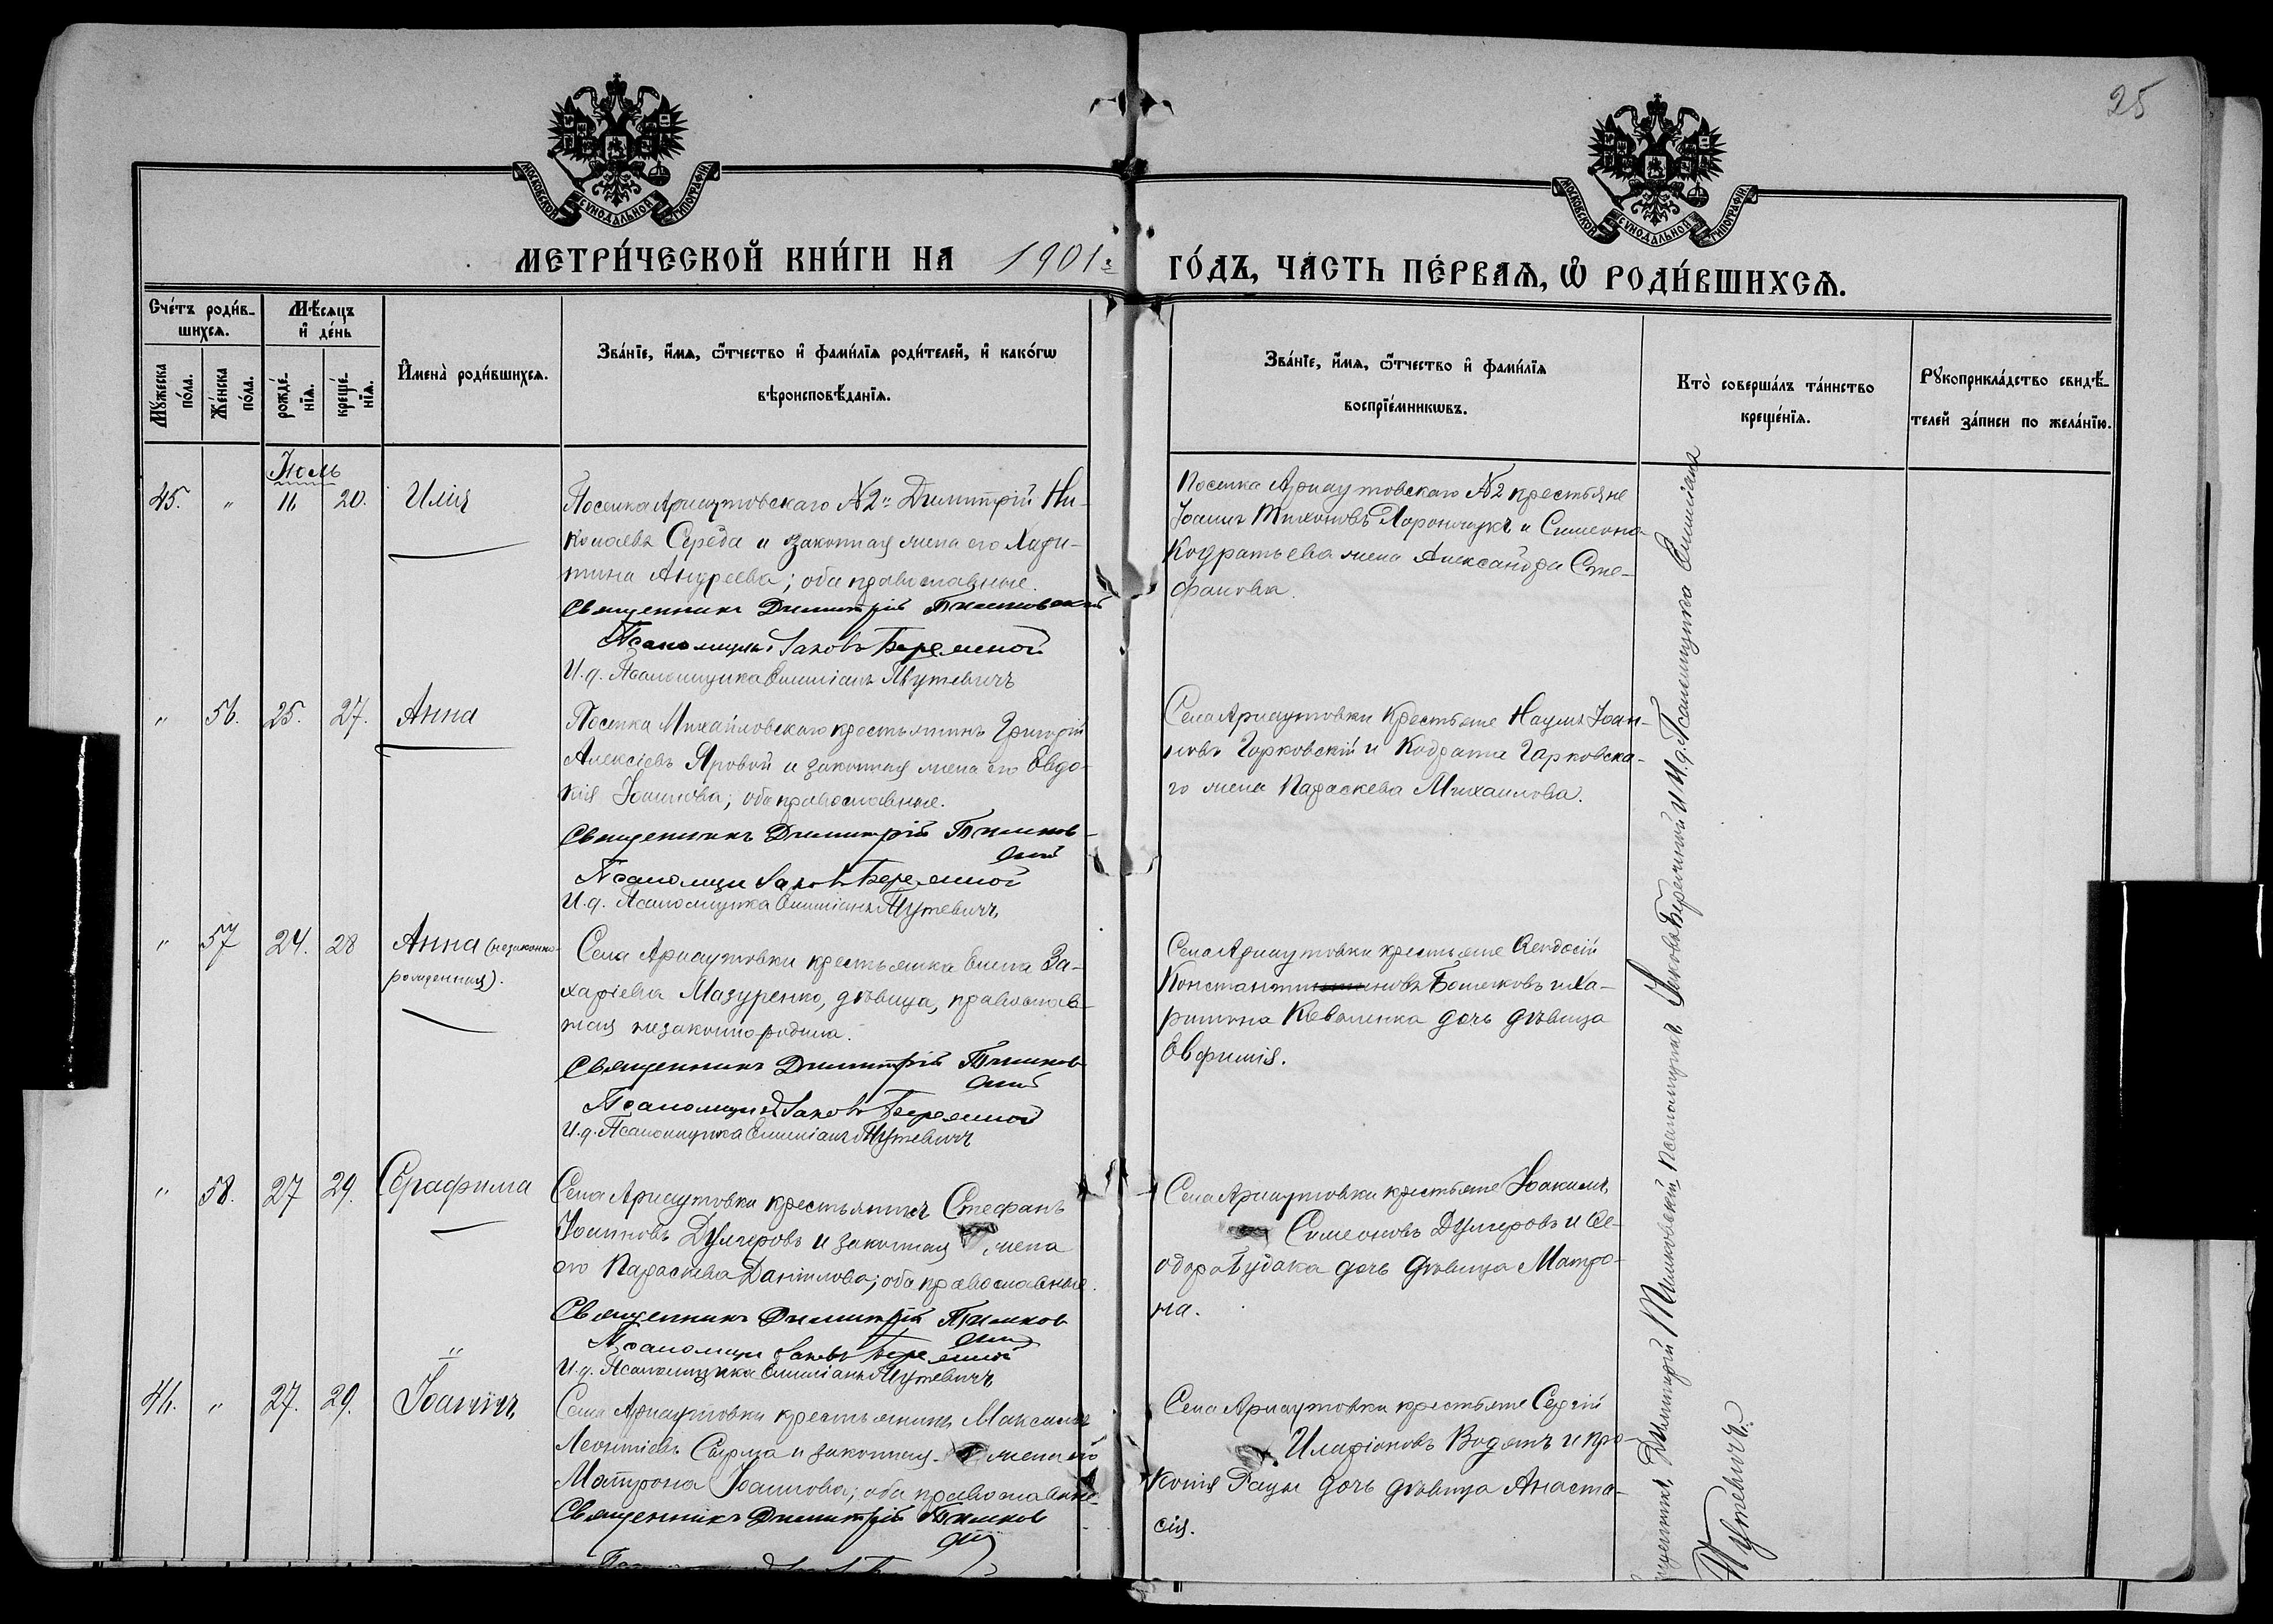 25
МОСКОВСКОЙ СУНОДАЛЬНОЙ ТИПОГРАФІИ
МОСКОВСКОЙ СУНОДАЛЬНОЙ ТИПОГРАФІИ
МЕТРИ́ЧЕСКОЙ КНИ́ГИ НА 1901 г.
ГО́ДЪ, ЧА́СТЬ ПЕ́РВАѦ, Ѿ РОДИ́ВШИХСѦ.
Сче́тъ роди́в-
шихсѧ.
Мѣ́сѧцъ
и҆ де́нь
Мꙋ́жеска
по́ла.
Же́нска
по́ла.
рожде́-
нїѧ.
креще́-
нїѧ.
И҆мена̀ роди́вшихсѧ.
Зва́нїе, и҆́мѧ, ѻ҆́тчество и҆ фами́лїѧ роди́телей, и҆ како́гѡ
вѣроисповѣ́данїѧ.
Зва́нїе, и҆́мѧ, ѻ҆́тчество и҆ фами́лїѧ
воспрїе́мникѡвъ.
Кто̀ соверша́лъ та́инство
креще́нїѧ.
Рꙋкоприкла́дство свидѣ́-
телей за́писи по жела́нїю.
Іюль
45. " 11 20. Илія
Поселка Арнаутовскаго №2й Димитрій Ни-
колаевъ Середа и законная жена его Хари-
тина Андреева; оба православные.
Священникъ Димитрій Тимковский
Псаломщикъ Іаковъ Беременой
И. д. Псаломщика Емиліанъ Путевичъ
Поселка Арнаутовскаго №2 крестьяне
Іоаннъ Тихоновъ и Симеона
Кодратьева жена Александра Сте-
фанова.
" 56. 25. 27. Анна
Поселка Михайловскаго крестьянинъ Григорій
Алексіевъ Яровой и законная жена его Евдо-
кія Іоаннова; оба православные.
Священникъ Димитрій Тимков-
ский
Псаломщи Іаковъ Беременой
И. д. Псаломщика Емиліанъ Путевичъ
Села Арнаутовки Крестьяне Наумъ Іоан-
новъ Гарковскій и Кодрата Гарковска-
го жена Параскева Михаилова.
" 57 24. 28 Анна (незаконно-
рожденная).
Села Арнаутовки крестьянка Елена За-
харіева Мазуренко, дѣвица, православ-
ная незаконно родила.
Священникъ Димитрій Тимков
ский
Псаломщикъ Іаковъ Беременой
И. д. Псаломщика Емиліанъ Путевичъ
Села Арнаутовки крестьяне Ѳеодосій
Константиновъ и Ха-
ритона Коваленка дочь дѣвица
Евфимія.
" 58. 27 29. Серафима
Села Арнаутовки крестьянинъ Стефанъ
Іоанновъ Думеровъ и законная жена
его Параскева Даніилова; оба православные.
Священникъ Димитрій Тимков
ский
Псаломщи Іаковъ Беременой
И. д. Псаломщика Емиліанъ Путевичъ
Села Арнаутовки крестьяне Іоакимъ
Симеоновъ Думеровъ и Ѳе-
одора Будака дочь дѣвица Матро-
на.
46. " 27. 29. Іоаннъ
Села Арнаутовки крестьянинъ Максимъ
Леонтіевъ Сырма и законная жена его
Матрона Іоаннова; оба православные.
Священникъ Димитрій Тимков
ский
Села Арнаутовки крестьяне Сергій
Иларіоновъ Водянъ и Про-
копія Рацы дочь дѣвица Анаста-
сія.
Священникъ Димитрій Тимковскій, псаломщикъ Іаковъ Беременой и И. д. Псаломщика Емиліанъ
Путевичъ.